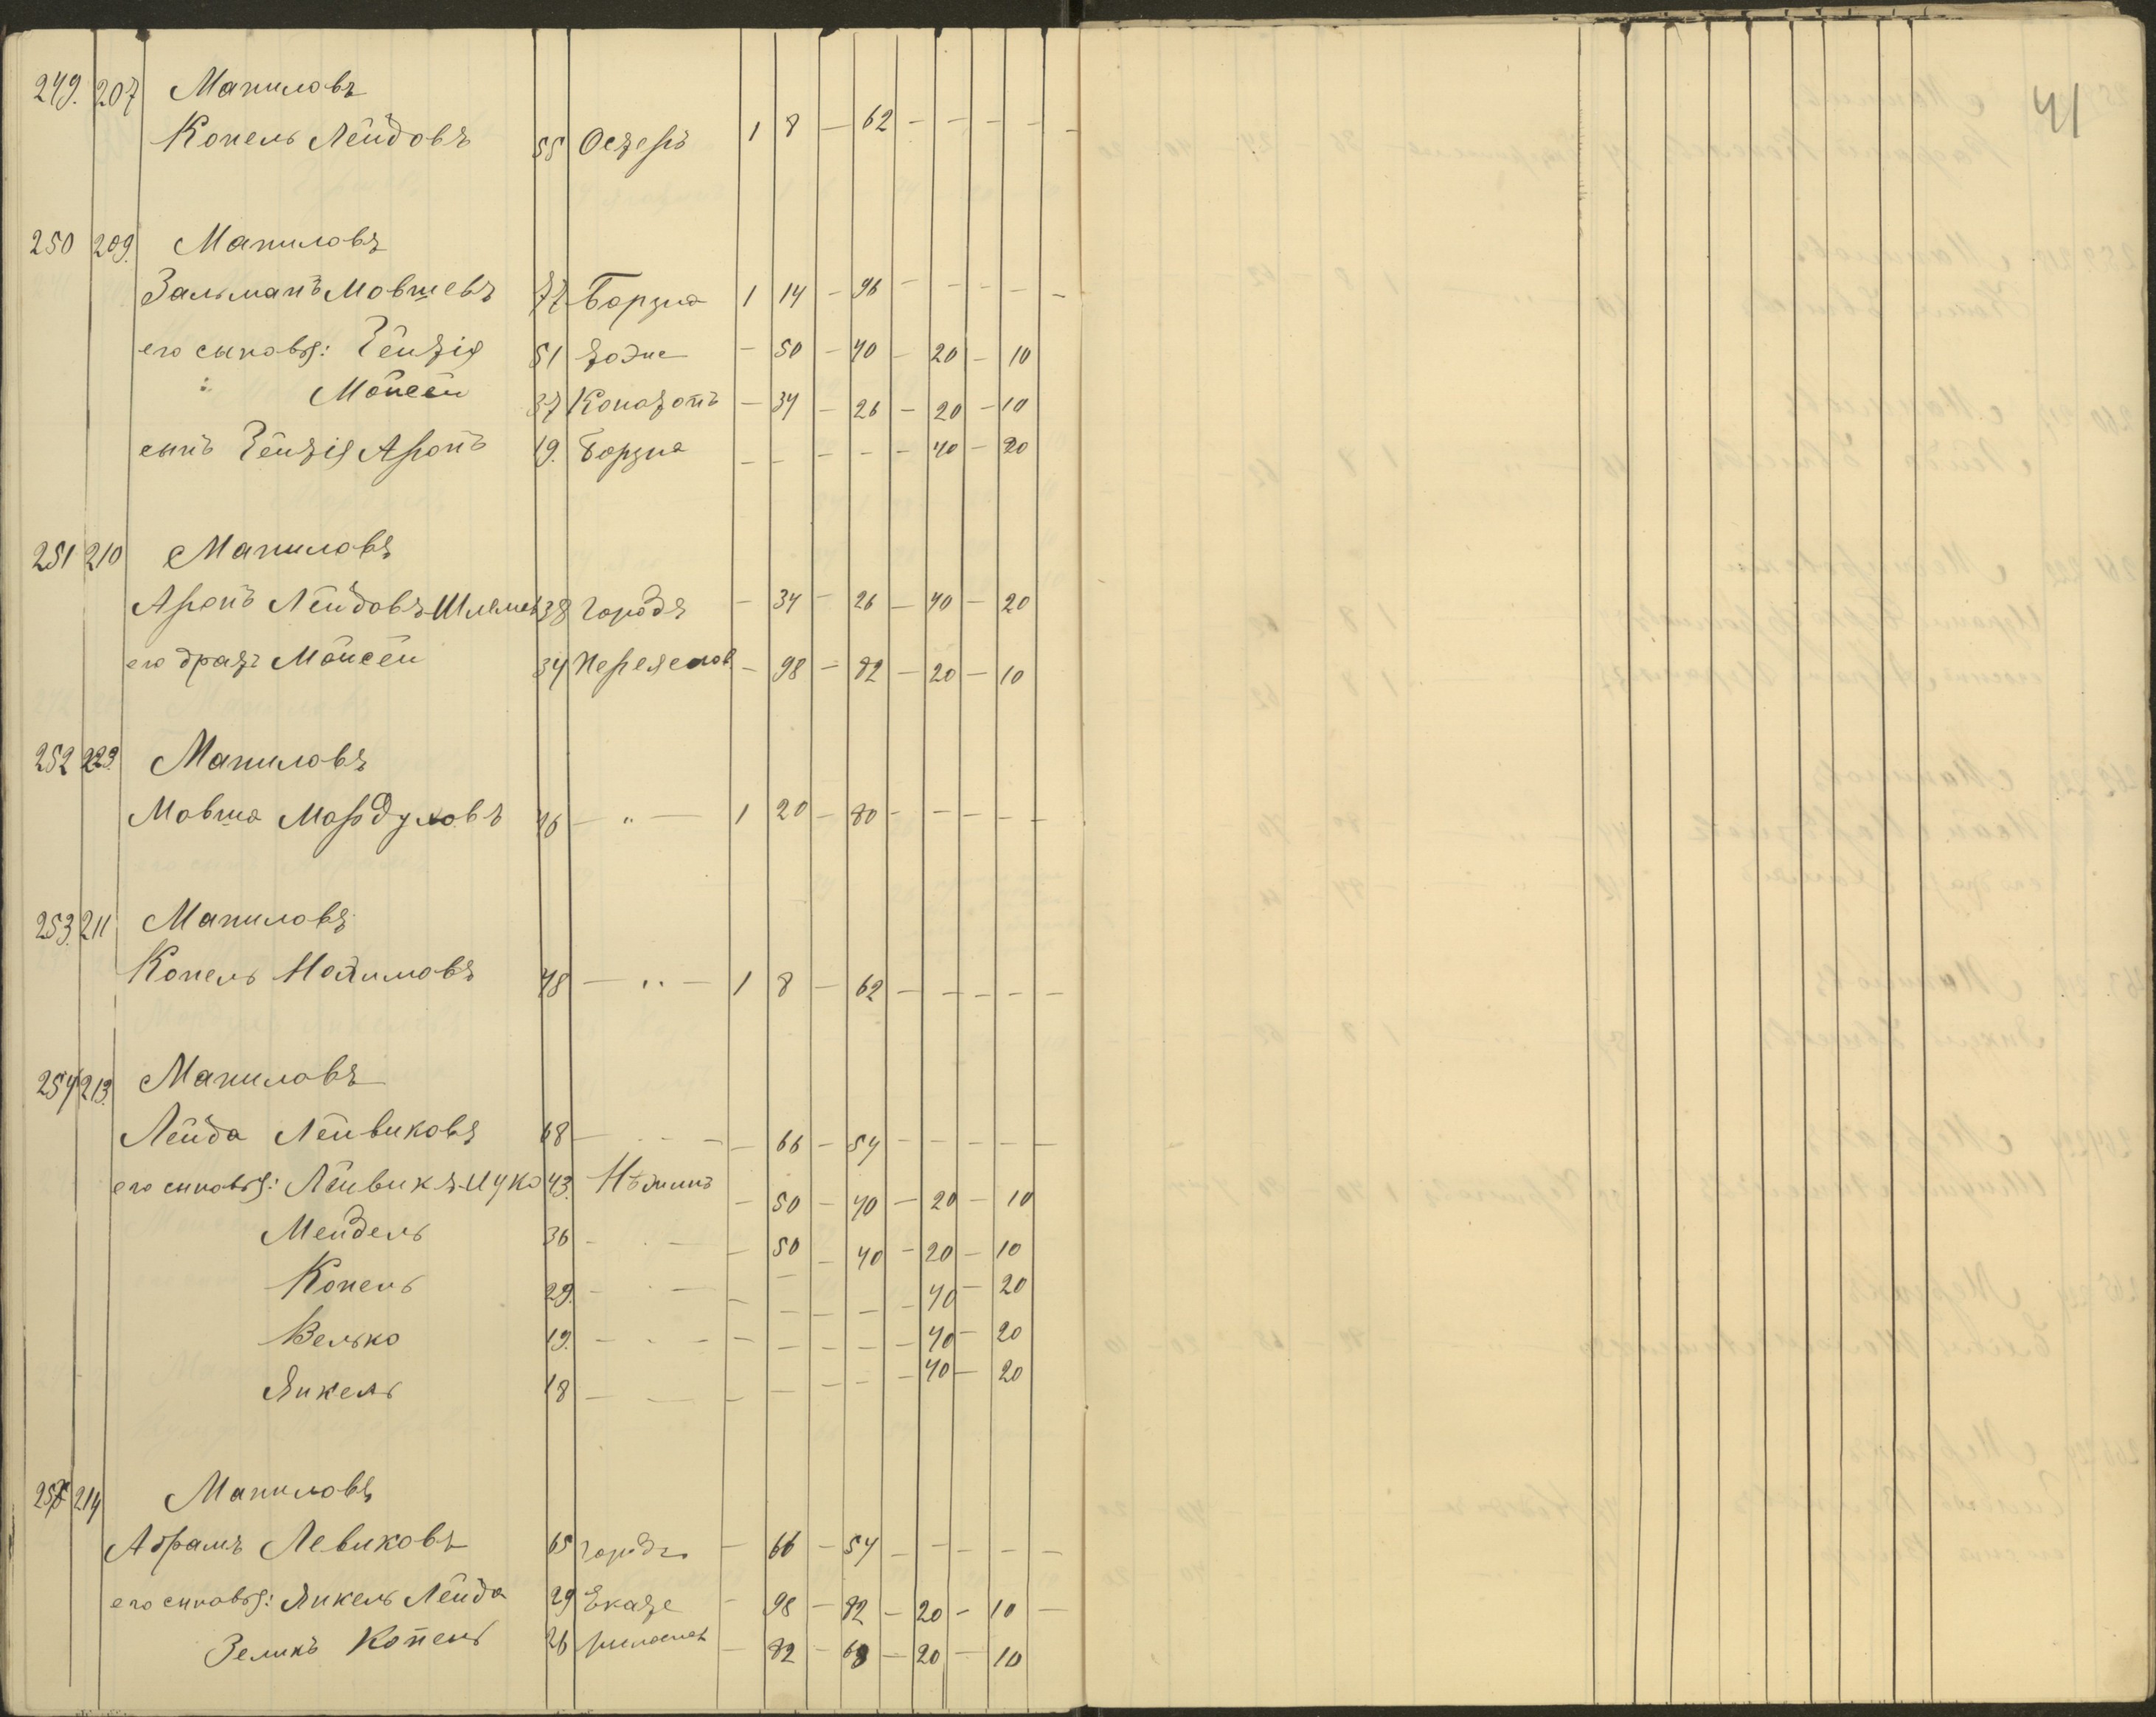 41
249. 207 Маниловъ
Копель Лейдовъ 55 Остеръ 1 8 — 62 — — — — —
250 209. Маниловъ
Залманъ Мовшевъ 77 Борзна 1 14 — 96 — — — — —
его сыновья: Бенція 51 тоже — 50 — 40 — 20 — 10
" Мойсей 37 Конотопъ — 34 — 26 — 20 — 10
сынъ Бенція Аронъ 19. Борзна — — — — — 40 — 20
251 210 Маниловъ
Аронъ Лейдовъ Шлема 38 городъ — 34 — 26 — 40 — 20
его братъ Мойсей 34 Переяслов. — 98 — 82 — 20 — 10
252 223. Маниловъ
Мовша Мордуховъ 46 — " — 1 20 — 80 — — — — —
253. 211 Маниловъ
Копель Нохимовъ 48 — " — 1 8 — 62 — — — — —
254 213. Маниловъ
Лейда Лейвиковъ 68 — " — — 66 — 54 — — — — —
его сыновья: Лейвикъ-Ицко 43. Нѣжинъ — 50 — 40 — 20 — 10
Мендель 36 — " — — 50 — 40 — 20 — 10
Копель 29. — " — — — — — — 40 — 20
Велько 19. — " — — — — — — 40 — 20
Янкель 18 — — — — — — — 40 — 20
255 214 Маниловъ
Абрамъ Левиковъ 65 городъ — 66 — 54 — — — — —
его сыновья: Янкель Лейда 29 Екате — 98 — 82 — 20 — 10 —
Зеликъ Копель 26 ринослав — 82 — 68 — 20 — 10